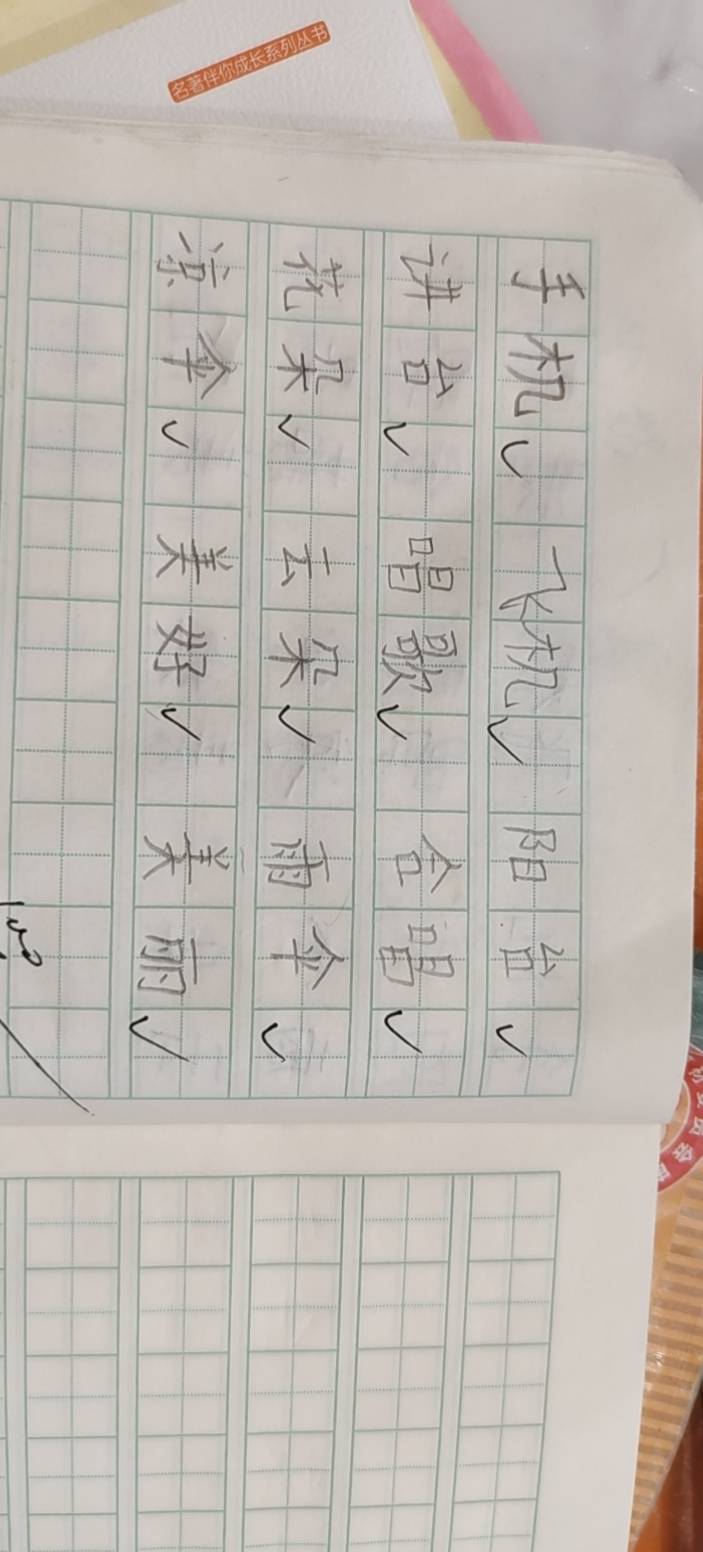 名著伴你成长系列丛书
手机 飞机 阳台
讲台 唱歌 合唱
花朵 云朵 雨伞
凉伞 美好 美丽
100